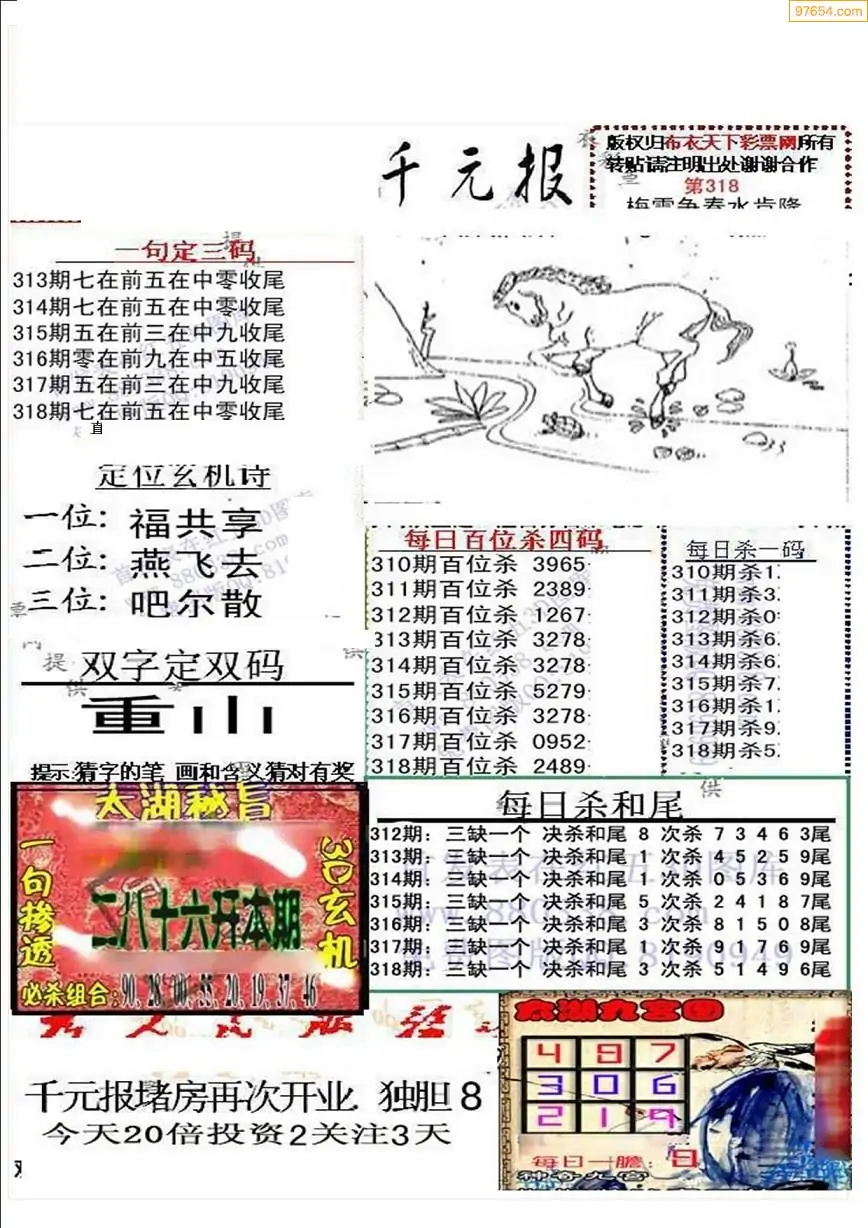 97654.com
千元报
版权归布衣天下彩票网所有
转贴请注明出处谢谢合作
第318
一句定三码
313期七在前五在中零收尾
314期七在前五在中零收尾
315期五在前三在中九收尾
316期零在前九在中五收尾
317期五在前三在中九收尾
318期七在前五在中零收尾
直
定位玄机诗
一位：福共享
二位：燕飞去
三位：吧尔散
每日百位杀四码
310期百位杀 3965
311期百位杀 2389
312期百位杀 1267
313期百位杀 3278
314期百位杀 3278
315期百位杀 5279
316期百位杀 3278
317期百位杀 0952
318期百位杀 2489
每日杀一码
310期杀1
311期杀3
312期杀0
313期杀6
314期杀6
315期杀7
316期杀1
317期杀9
318期杀5
双字定双码
重 小
提示:猜字的笔 画和含义猜对有奖
每日杀和尾
312期：三缺一个 决杀和尾 8 次杀 7 3 4 6 3尾
313期：三缺一个 决杀和尾 1 次杀 4 5 2 5 9尾
314期：三缺一个 决杀和尾 1 次杀 0 5 3 6 9尾
315期：三缺一个 决杀和尾 5 次杀 2 4 1 8 7尾
316期：三缺一个 决杀和尾 3 次杀 8 1 5 0 8尾
317期：三缺一个 决杀和尾 1 次杀 9 1 7 6 9尾
318期：三缺一个 决杀和尾 3 次杀 5 1 4 9 6尾
太湖秘旨
一句掺透
3D玄机
二八十六开本期
必杀组合:90.28.00.55.20.19.37.46
千元报堵房再次开业. 独胆 8
今天20倍投资2关注3天
太湖九宫图
4 9 7
3 0 6
2 1 9
每日一胆：8
神奇九宫